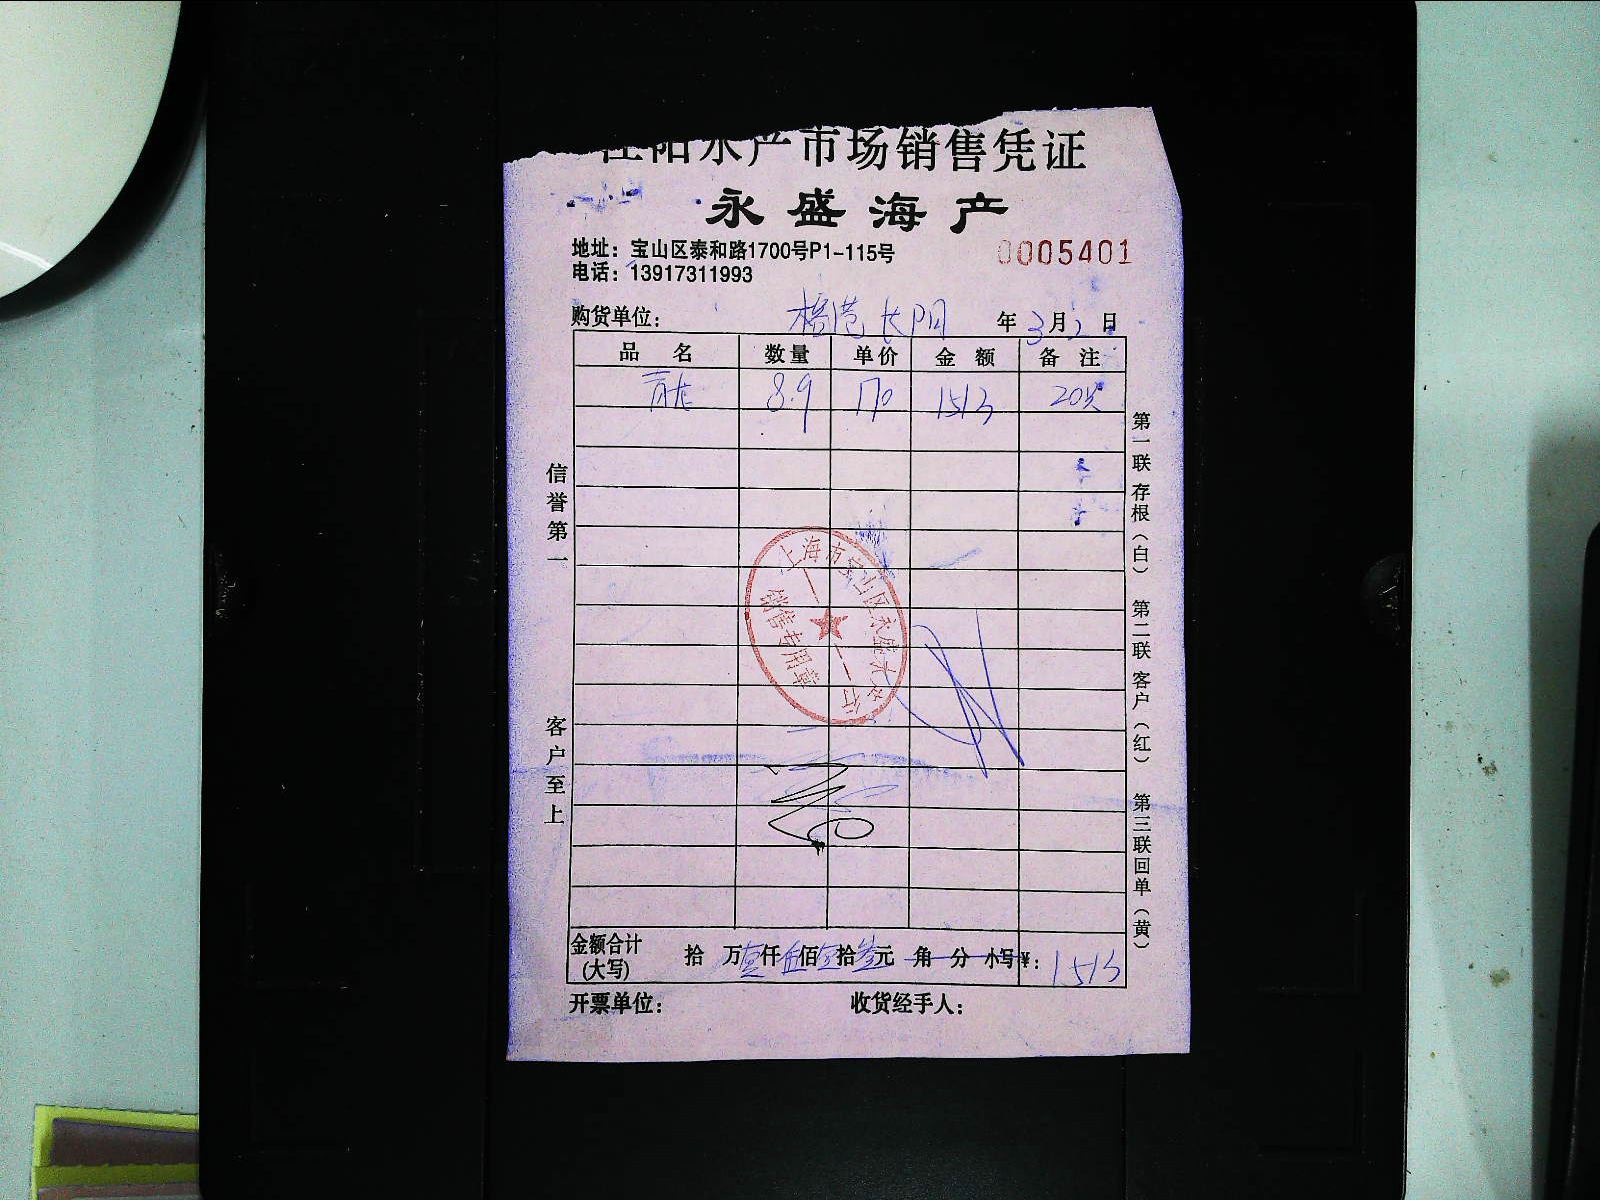 江阳水产市场销售凭证
永盛海产
地址：宝山区泰和路1700号P1-115号
0005401
电话：13917311993
购货单位： 长阳 年 3月2日
品名 数量 单价 金额 备注
青龙 8.9 170 1513 20只
信誉第一
客户至上
第一联 存根（白） 第二联 客户（红） 第三联 回单（黄）
上海市宝山区永盛水产行
销售专用章
金额合计（大写） 拾 万壹仟伍佰壹拾叁元 角 分 小写￥：1513
开票单位： 收货经手人：